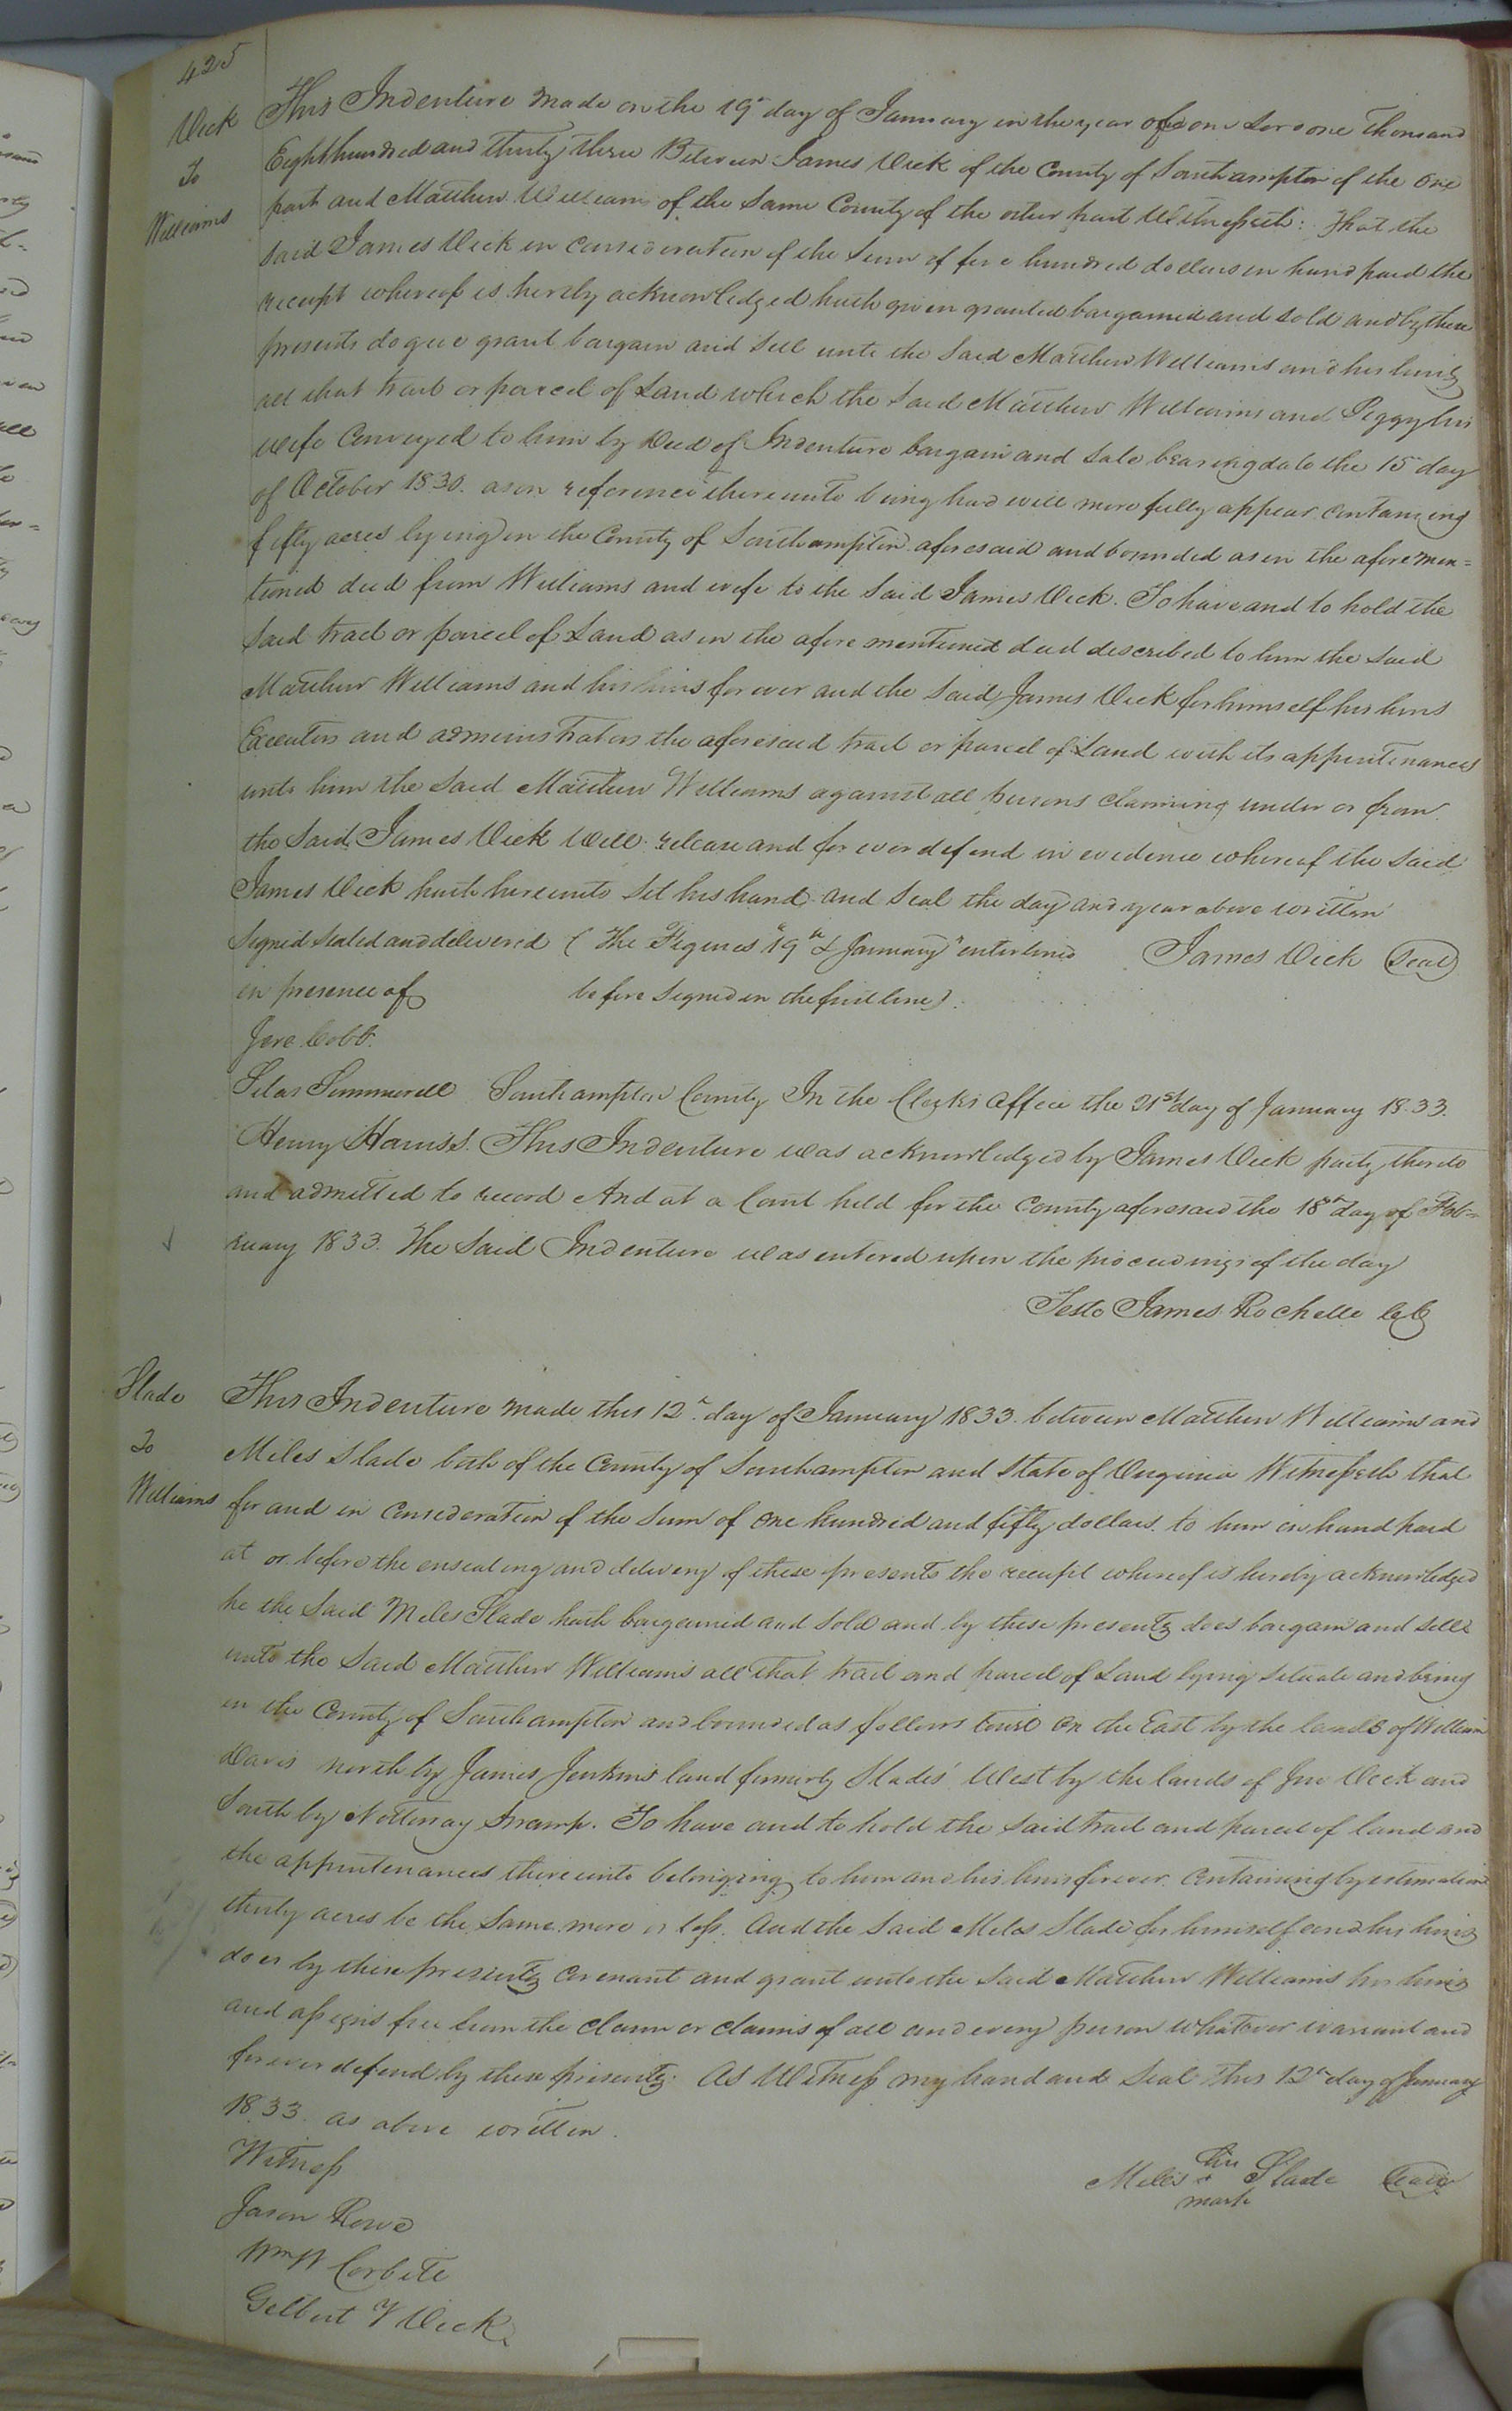 425
Vick
To
Williams
This Indenture made on the 19th day of January in the year of our Lord one thousand
Eight hundred and thirty three Between James Vick of the County of Southampton of the one
part and Matthew Williams of the Same County of the other part Witnesseth: That the
said James Vick in consideration of the Sum of five hundred dollars in hand paid the
receipt whereof is hereby acknowledged hath given granted bargained and sold and by these
presents do give grant bargain and sell unto the said Matthew Williams and his heirs
all that tract or parcel of Land which the said Matthew Williams and Peggy his
wife Conveyed to him by Deed of Indenture bargain and sale bearing date the 15th day
of October 1830. as on reference there unto being had will more fully appear containing
fifty acres lying in the County of Southampton aforesaid and bounded as in the aforemen=
tioned deed from Williams and wife to the said James Vick. To have and to hold the
said tract or parcel of Land as in the afore mentioned deed described to him the said
Matthew Williams and his heirs forever and the said James Vick for himself his heirs
Executors and administrators the aforesaid tract or parcel of Land with its appurtenances
unto him the said Matthew Williams against all persons claiming under or from
the said James Vick will release and forever defend in evidence whereof the said
James Vick hath hereunto set his hand and seal the day and year above written
Signed Sealed and delivered ( The Figures "19th & January" enterlined James Vick (Seal)
in presence of before signed in the first line).
Jere. Cobb.
Silas Summerell Southampton County In the Clerks Office the 21st day of January 1833.
Henry Harriss. This Indenture was acknowledged by James Vick party thereto
and admitted to record And at a Court held for the County aforesaid the 18th day of Feb=
ruary 1833. The Said Indenture was entered upon the proceedings of the day
Teste James Rochelle CC
Slade
To
Williams
This Indenture made this 12th day of January 1833. between Matthew Williams and
Miles Slade both of the County of Southampton and State of Virginia Witnesseth that
for and in Consideration of the sum of one hundred and fifty dollars to him in hand paid
at or before the ensealing and delivery of these presents the receipt whereof is hereby acknowledged
he the said Miles Slade hath bargained and sold and by these presents does bargain and sell
unto the said Matthew Williams all that tract and parcel of Land lying situate and being
in the County of Southampton and bounded as follows towit on the East by the lands of William
Davis north by James Jenkins land formerly Slades' West by the lands of Jno Vick and
South by Nottoway Swamp. To have and to hold the said tract and parcel of land and
the appurtenances there unto belonging to him and his heirs forever. Containing by estimation
thirty acres be the same more or less. And the said Miles Slade for himself and his heirs
does by these presents covenant and grant unto the said Matthew Williams his heirs
and assigns free from the claim or claims of all and every person whatever warrant and
forever defend by these presents. As Witness my hand and Seal this 12th day of January
1833. as above written.
Witness
Miles his + mark Slade (Seal)
Jason Rowe
Wm W Corbitt
Gilbert Y Vick